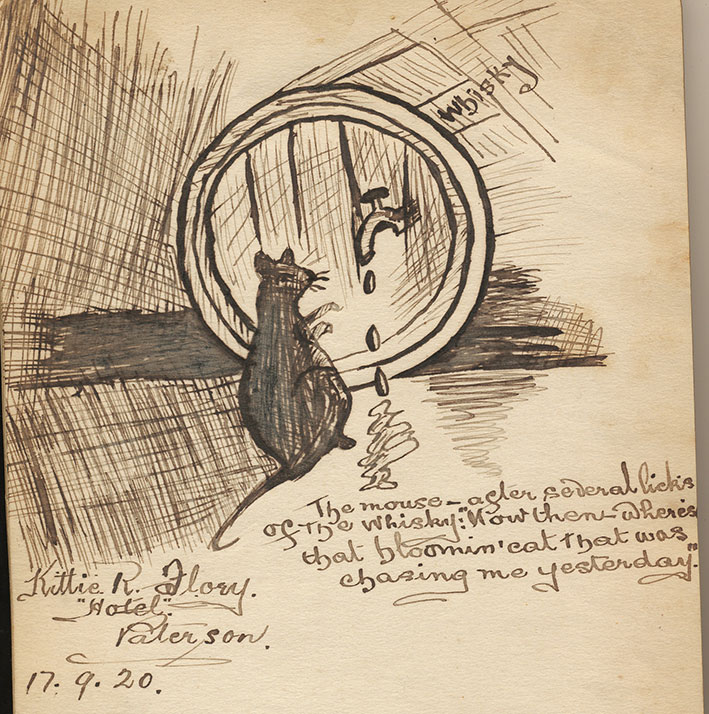 Whisky
The mouse – after several licks
of the whisky: "Now then – where's
that bloomin' cat that was
chasing me yesterday."
Kittie R.
"Hotel".
Paterson.
17. 9. 20.